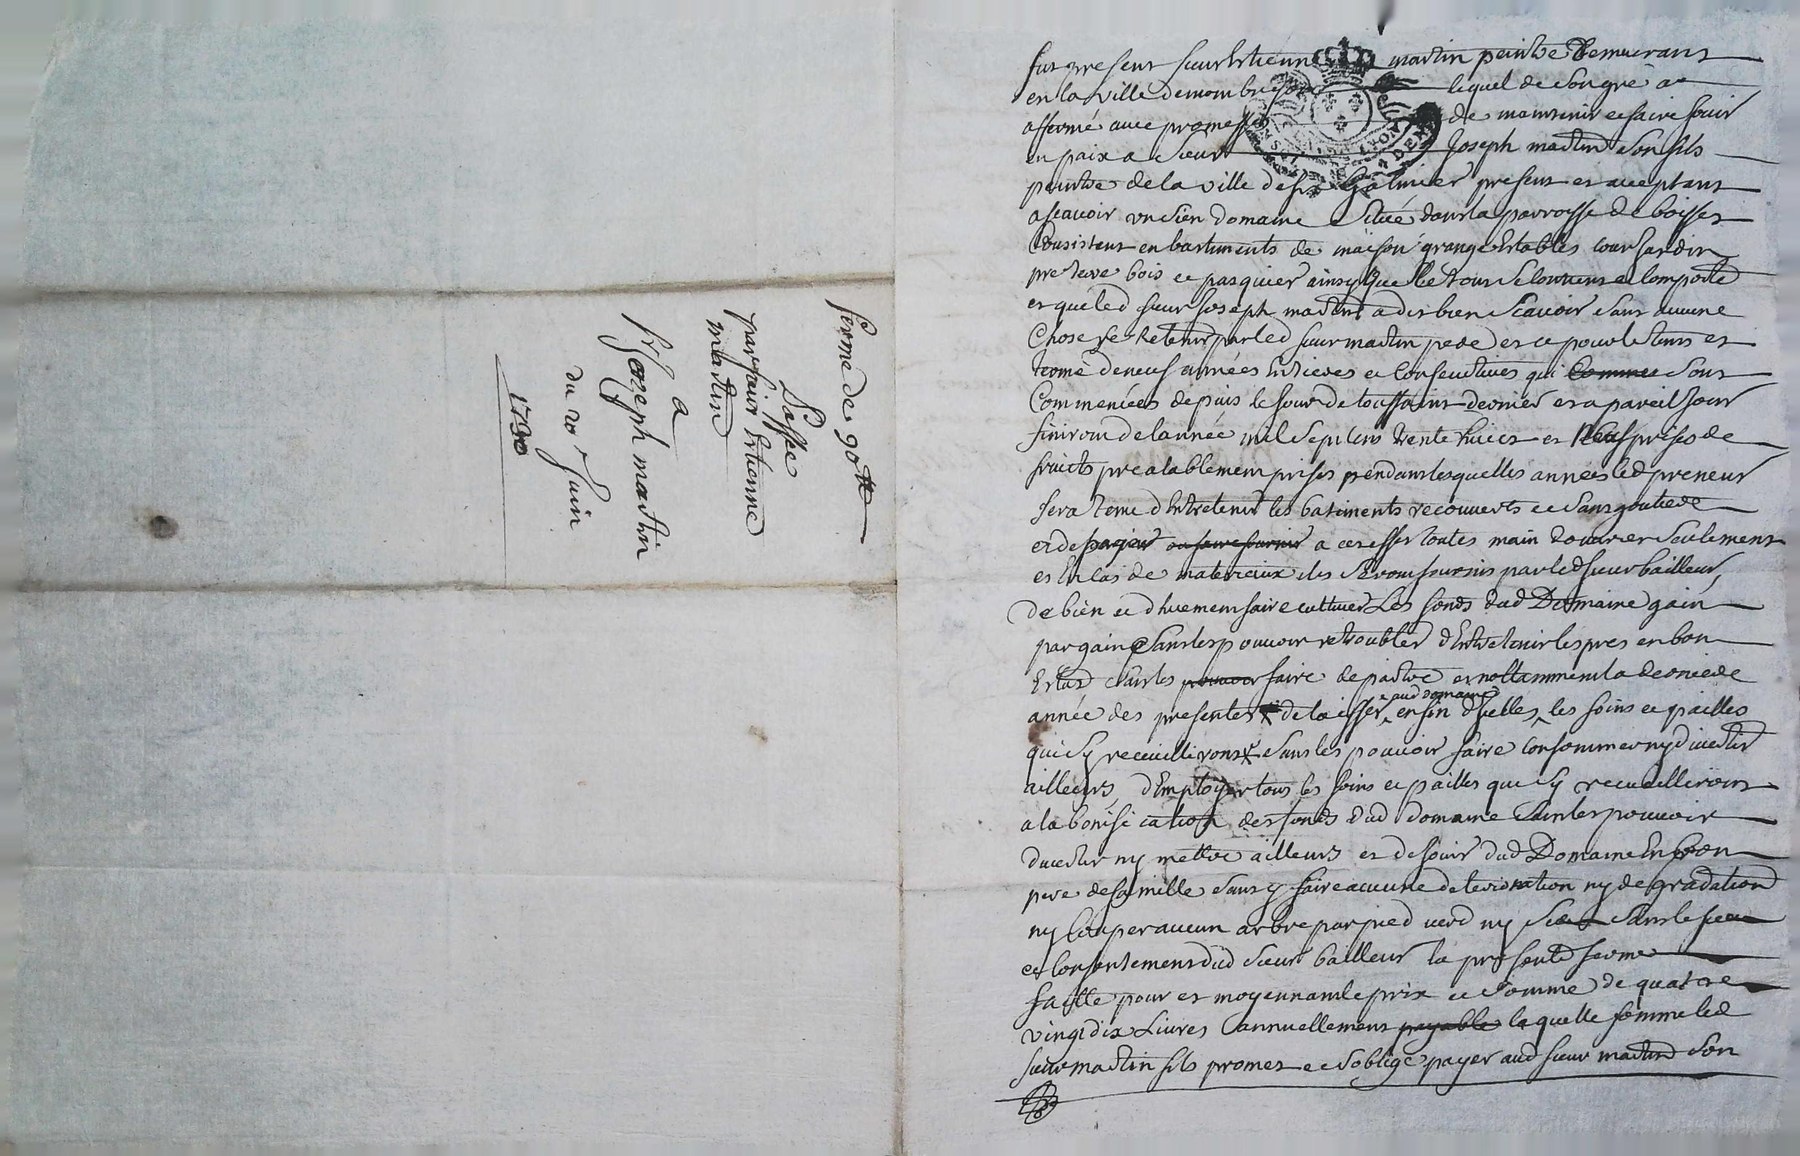 ferme de 90ᵗᵗ
passée
par sieur Estienne
martin
a
Sr Joseph martin
du 20e Juin
1730
fut present sieur Estienne martin peintre demeurant
en la ville de mombrison lequel de son gré a
affermé avec promesse de maintenir et faire jouir
en paix a sieur Joseph martin son fils
peintre de la ville de st Galmier present et acceptant
ascavoir un sien domaine situé dans la parroisse de boisset
Consistant en bastiments de maison grange Estables cour Jardin
pre terre bois et pasquier ainsy que le tout se contient et comporte
et que led sieur Joseph martin a dit bien scavoir sans aucune
Chose se Retenir par led sieur martin pere et ce pour le tems et
terme de neuf années Entieres et Consecutives qui Commen sont
Commencées depuis le jour de toussaint dernier et a pareil Jour
finiront de lannée mil sept cens trente huict et Neuf prises de
fruicts prealablement prises pendant lesquelles années led preneur
sera tenu dEntretenir les batiments recouverts et sans goutiere
et de payer ou faire fournir a ces effet toutes main douvrier seulement
et En cas de materiaux ils seront fournis par led sieur bailleur,
de bien et dhuement faire cultiver Les fonds dud Domaine gain
par gain sans les pouvoir retroubler dEntretenir les pres en bon
Estat sans les pouvoir faire depaitre et nottamment la derniere
année des presentes de laisser aud domaine en fin dicelles, les foins et pailles
qui sy recueilliront sans les pouvoir faire consommer ny divertir
ailleurs dEmployer tous les foins et pailles qui sy recueilliront
a la bonification des fonds dud domaine sans les pouvoir
divertir ny mettre ailleurs et de jouir dud Domaine En bon
pere de famille sans y faire aucune deterioration ny degradation
ny Couper aucun arbre par pied verd ny sec sans le sceu
et Consentement dud sieur bailleur la presente ferme
faitte pour et moyennant le prix et somme de quatre
vingt dix Livres annuellement payable laquelle somme led
sieur martin fils promet et soblige payer aud sieur martin son